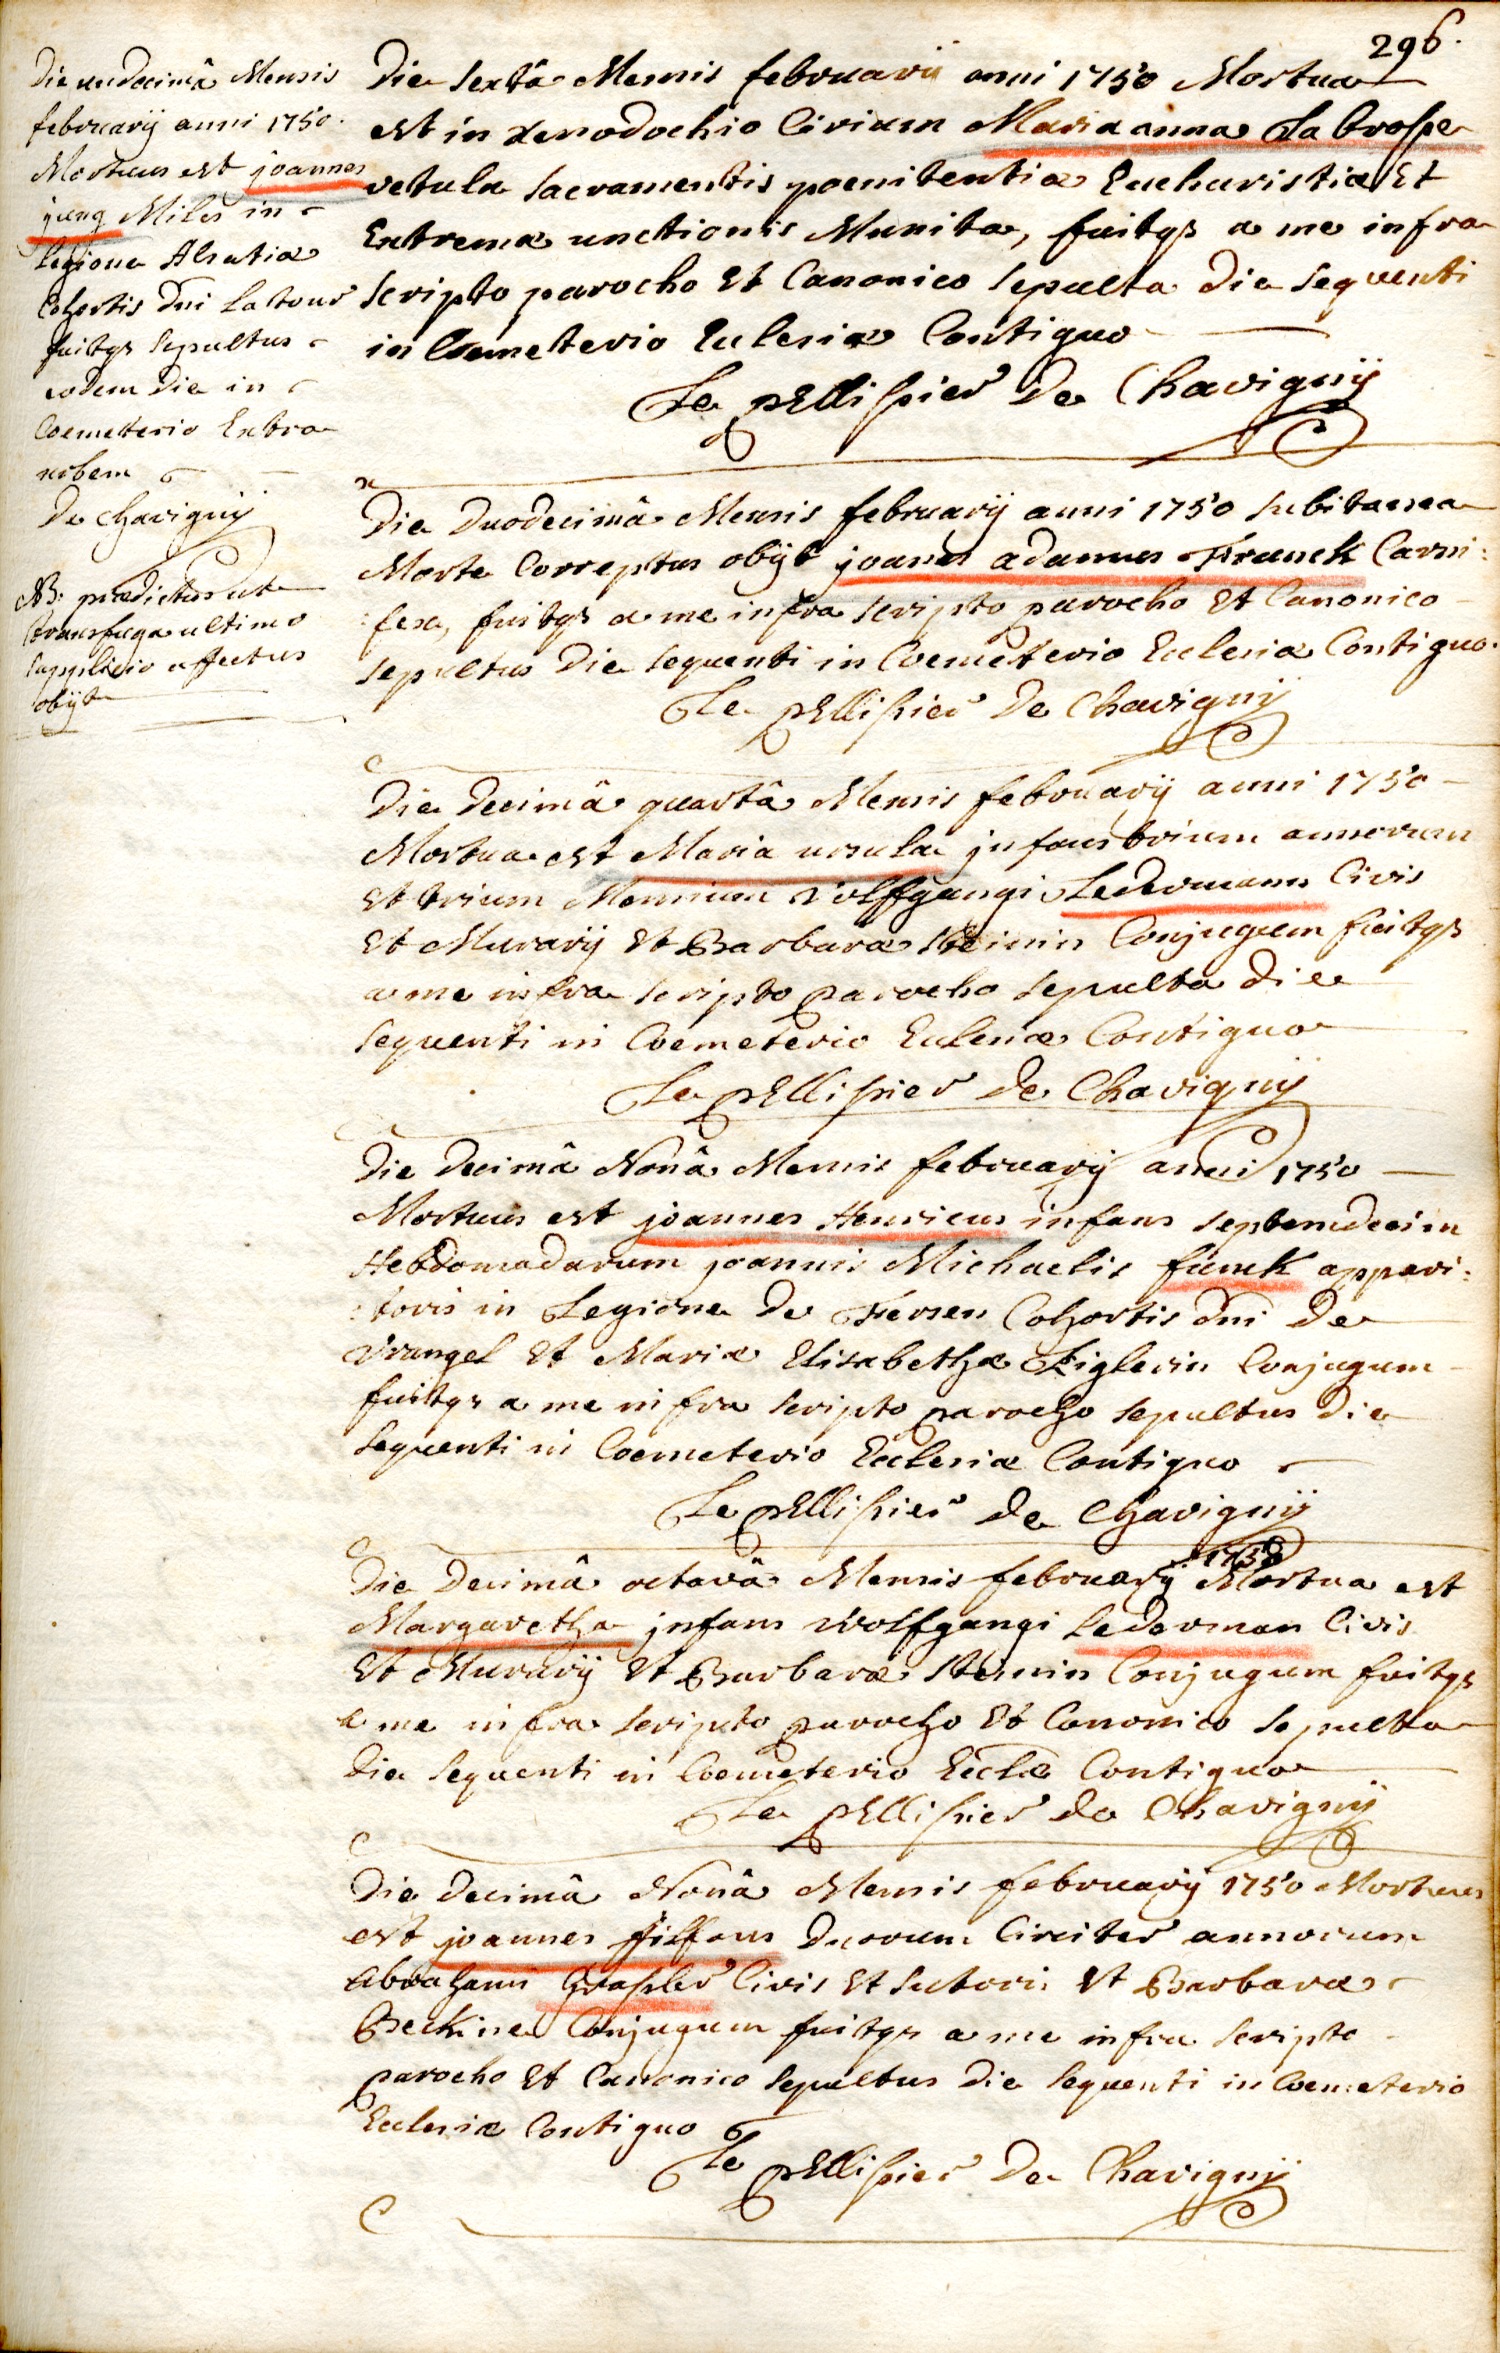 296.
Die undecimâ Mensis
februarij anni 1750.
Mortuus est joannes
jung Miles in
Legione Alsatiæ
Cohortis Dni La tour
fuitqs sepultus
eodem die in
Coemeterio Extra
urbem
De Chavignij
NB: prædictus ut
transfuga ultimo
supplicio affectus
obijt
Die sextâ Mensis februarij anni 1750 Mortua
est in xenodochio Civium Maria anna La brosse
vetula sacramentis poenitentiæ Eucharistiæ Et
Extremæ unctionis Munita, fuitqs a me infra
scripto parocho Et Canonico sepulta die sequenti
in Coemeterio Ecclesiæ Contiguo
Le pEllissier De Chavignij
Die Duodecimâ Mensis februarij anni 1750 subitanea
Morte Correptus obijt joanes adamus Franck Carni:
:fex, fuitqs a me infra scripto parocho Et Canonico
sepultus Die sequenti in Coemeterio Ecclesiæ Contiguo.
Le pEllissier De Chavignij
Die Decimâ quartâ Mensis februarij anni 1750
Mortua est Maria ursula infans trium annorum
Et trium Mensium Volffgangi Ledermann Civis
Et Murarij Et Barbaræ Steinin Conjugum fuitqs
a me infra scripto parocho sepulta die
sequenti in Coemeterio Ecclesiæ Contiguo
Le pEllissier de Chavignij
Die Decimâ Nonâ Mensis februarij anni 1750
Mortuus est joannes Henricus infans septemdecim
Hebdomadarum joannis Michaelis funck appari:
:toris in Legione De Fersen Cohortis Dni De
Vrangel Et Mariæ Elisabethæ Ziglerin Conjugum
fuitqs a me infra scripto parocho sepultus Die
sequenti in Coemeterio Ecclesiæ Contiguo
Le pEllissier De Chavignij
1750
Die Decimâ octavâ Mensis februarij Mortua est
Margaretha infans Wolffgangi Lederman Civis
Et Murarij Et Barbaræ Steinin Conjugum fuitqs
a me infra scripto parocho Et Canonico sepulta
Die sequenti in Coemeterio Ecclæ Contiguo
Le pEllissier de Chavignij
Die Decimâ Nonâ Mensis februarij 1750 Mortuus
est joannes Duorum Circiter annorum
Abrahami Grassler Civis Et sutoris Et Barbaræ
Beckine Conjugum fuitqs a me infra scripto
parocho Et Canonico sepultus Die sequenti in Coemeterio
Ecclesiæ Contiguo
Le pEllissier De Chavignij